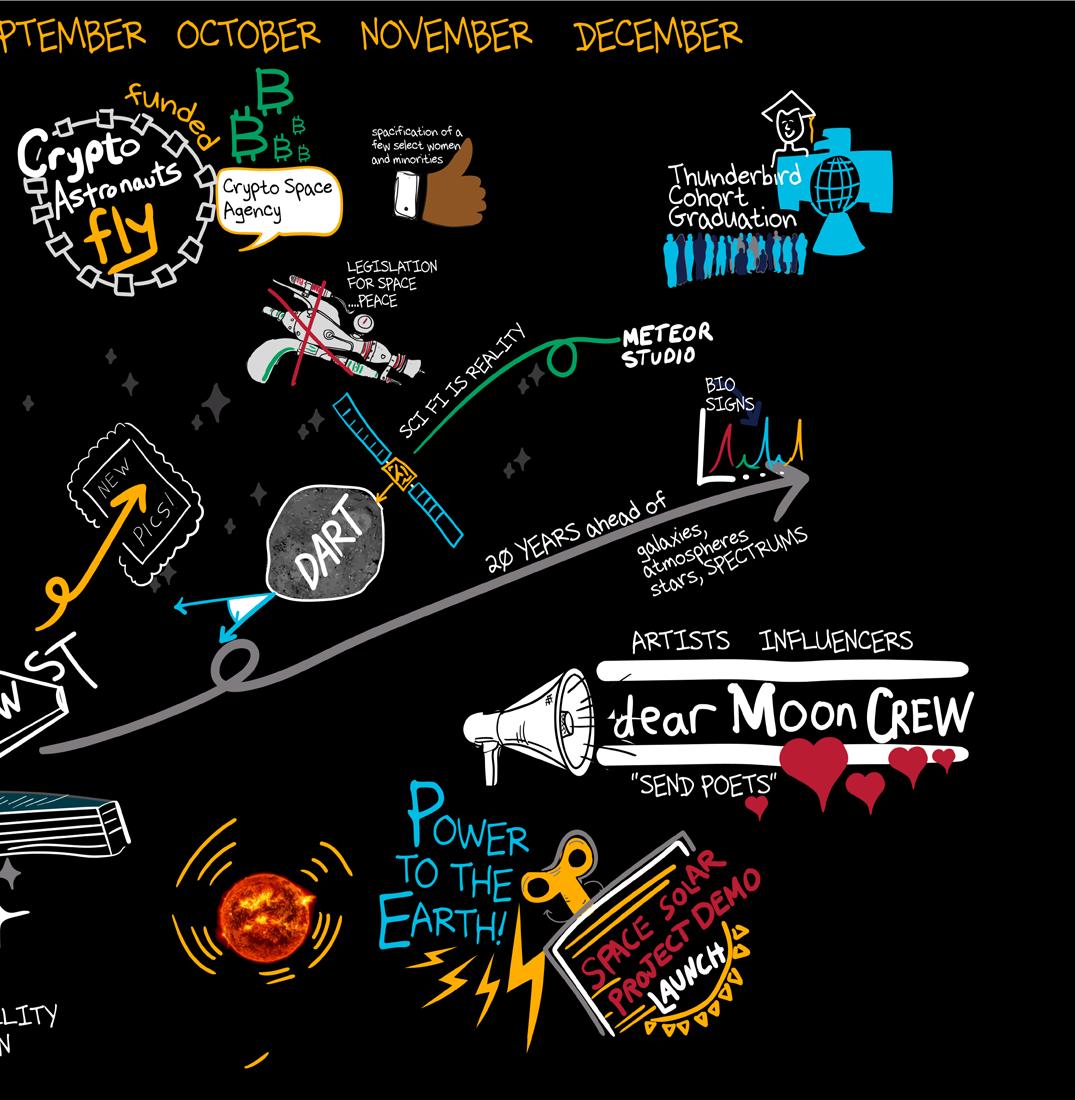 PTEMBER OCTOBER NOVEMBER DECEMBER
funded
Crypto
Astronauts
fly
Crypto Space
Agency
spacification of a
few select women
and minorities
Thunderbird
Cohort
Graduation
LEGISLATION
FOR SPACE
....PEACE
SCI FI IS REALITY
METEOR
STUDIO
BIO
SIGNS
NEW
PICS!
DART
20 YEARS ahead of
galaxies,
atmospheres
stars, SPECTRUMS
W ST
ARTISTS INFLUENCERS
dear Moon CREW
"SEND POETS"
POWER
TO THE
EARTH!
SPACE SOLAR
PROJECT DEMO
LAUNCH
LITY
N